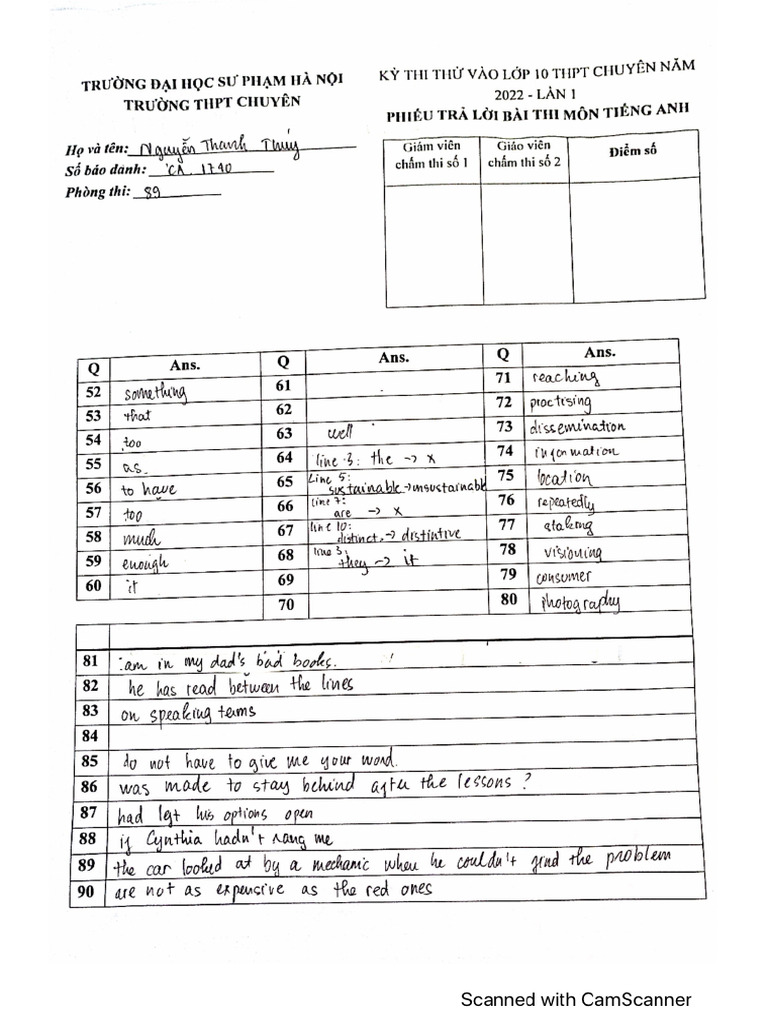 TRƯỜNG ĐẠI HỌC SƯ PHẠM HÀ NỘI
TRƯỜNG THPT CHUYÊN
KỲ THI THỬ VÀO LỚP 10 THPT CHUYÊN NĂM
2022 - LẦN 1
PHIẾU TRẢ LỜI BÀI THI MÔN TIẾNG ANH
Họ và tên: Nguyễn Thanh Thúy
Số báo danh: CA 1740
Phòng thi: 89
Giám viên chấm thi số 1
Giáo viên chấm thi số 2
Điểm số
Q Ans. Q Ans. Q Ans.
52 something 61 71 reaching
53 that 62 72 practising
54 too 63 well 73 dissemination
55 as 64 line 3: the -> x 74 information
56 to have 65 Line 5: sustainable -> unsustainable 75 location
57 too 66 line 7: are -> x 76 repeatedly
58 much 67 line 10: distinct -> distintive 77 staking
59 enough 68 line 3: they -> it 78 visioning
60 it 69 79 consumer
70 80 photography
81 am in my dad's bad books.
82 he has read between the lines
83 on speaking terms
84
85 do not have to give me your word.
86 was made to stay behind after the lessons?
87 had left his options open
88 if Cynthia hadn't rang me
89 the car looked at by a mechanic when he couldn't find the problem
90 are not as expensive as the red ones
Scanned with CamScanner